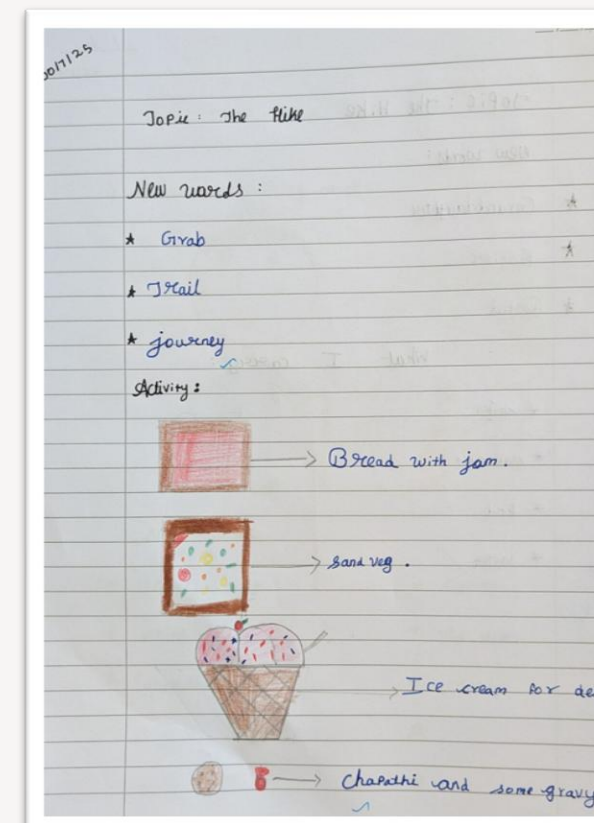 Topic: The Hike
New words:
★ Grab
★ Trail
★ journey
Activity:
Bread with jam.
Sand veg.
Ice cream for de
Chapathi and some gravy